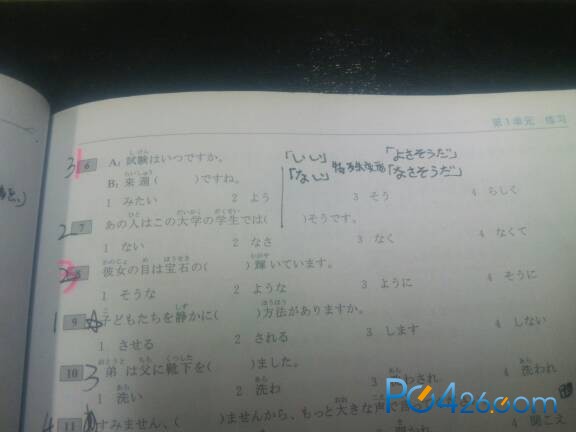 第1单元 练习
3 6 A：試験はいつですか。 「いい」 「よさそうだ」
B：来週（ ）ですね。 「ない」 「なさそうだ」
1 みたい 2 よう 3 そう 4 らしく
2 7 あの人はこの大学の学生では（ ）そうです。
1 ない 2 なさ 3 なく 4 なくて
8 彼女の目は宝石の（ ）輝いています。
1 そうな 2 ような 3 ように 4 そうに
1 9 子どもたちを静かに（ ）方法がありますか。
1 させる 2 される 3 します 4 しない
10 3 弟は父に靴下を（ ）ました。
1 洗い 2 洗わ 3 洗わされ 4 洗われ
4 11 すみません、（ ）ませんから、もっと大きな声で
PC426.com